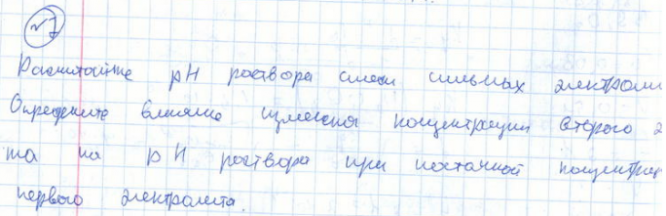 №7
Рассчитайте pH раствора смеси сильных электроли
Определите влияние изменения концентрации второго э
та на pH раствора при постоянной концентрац
первого электролита.